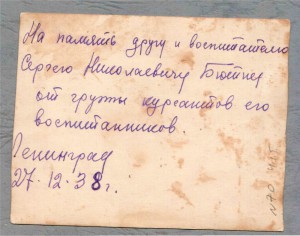 На память другу и воспитателю
Сергею Николаевичу Бютнер
от группы курсантов его
воспитанников.
Ленинград
27.12.38 г.